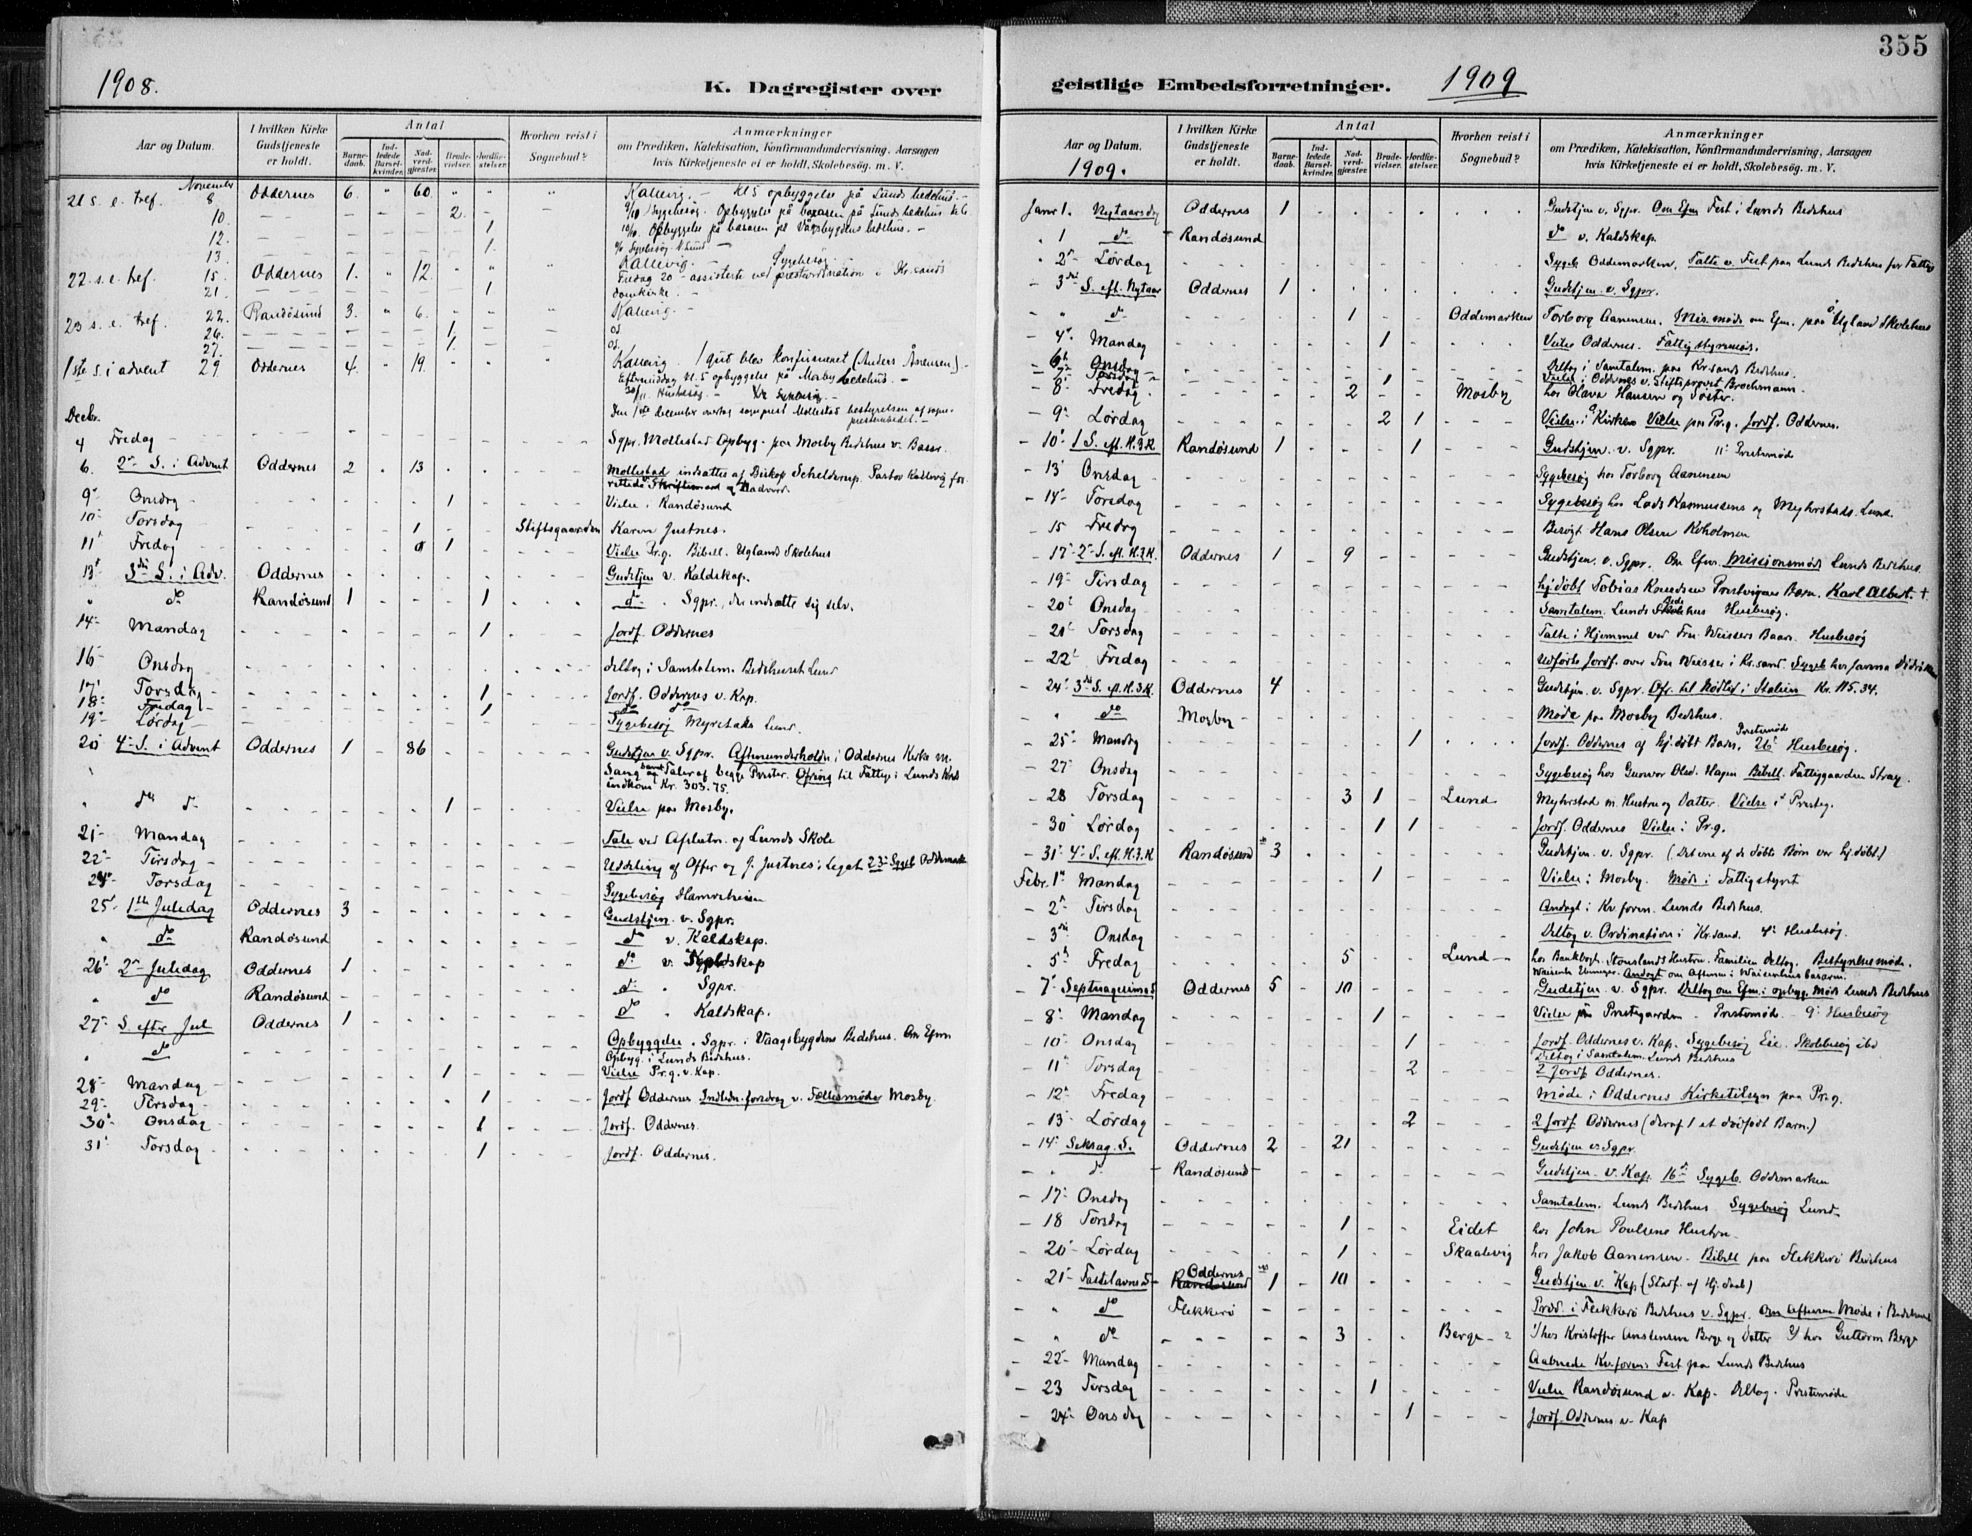 355
1908.
K. Dagregister over
Aar og Datum.
I hvilken Kirke Gudstjeneste er holdt.
Antal
Barnedaab.
Indledede Barselkvinder.
Nadverdgjester.
Brudevielser.
Jordfæstelser.
Hvorhen reist i Sognebud?
Anmærkninger
om Prædiken, Katekisation, Konfirmandundervisning, Aarsagen
hvis Kirketjeneste ei er holdt, Skolebesøg. m. V.
21 s. e. tref. November 8 Oddernes 6. " 60 " " " Kallevig. – Kl 5 opbyggelse på Lunds bedehus. –
10. – – – – 2. – – Sygebesøg. Opbyggelse på basaren på Lunds bedehus kl 6
12. – – – – 1 Opbyggelse på basaren på Vågsbygdens bedehus. –
13. – – – – 1. Sygebesøg Lund –
22. s. e. tref. 15. Oddernes 1. " 12 " " " Kallevig. – Sygebesøg –
Fredag 20 – assisterte ved presteordination i Kr.sands
21. – – – – 1 domkirke. –
23 s. e. tref. 22. Randøsund 3. " 6. " – – Kallevig. –
26. – – – 1. – –
27. – – – 1. – –
1ste s. i advent 29. Oddernes 4. " 19. " " " Kallevig 1 gut blev konfirmeret (Anders Ånensen) –
Eftermiddag kl. 5 opbyggelse på Mosby bedehus. –
30/11. Husbesøg. – Sygebesøg. –
Decbr. Den 1ste December overtog sogneprest Mollestad bestyrelsen af sogneprestembedet. –
4 Fredag – – – Sgpr. Mollestad Opbyg. paa Mosby Bedehus v. Basar.
6. 2n S. i Advent Oddernes 2 . 13 . . . Mollestad indsattes af Biskop Schelderup. Pastor Kallevig forrettede Skriftemaal og Nadverd.
9n Onsdag – – – 1 – – Vielse i Randøsund
10n Torsdag – – 1 – – Stiftsgaarden Karen Justnes.
11t Fredag – – – 1 – – Vielse Pr.g. Bibell. Uglands Skolehus
13t 3die S. i Adv. Oddernes – – – Gudstjen v. Kaldskap.
" do Randøsund 1 – – – 1 – do " Sgpr., der indsatte sig selv.
14n Mandag – – – 1 – – Jordf. Oddernes
16n Onsdag – – – Deltog i Samtalem. Bedehuset Lund
17t Torsdag – – – 1 – – Jordf. Oddernes v. Kap.
18n Fredag – – – 1 – – do do
19n Lørdag – – – Sygebesøg Lund.
20 4n S. i Advent Oddernes 1 – 86 – – Gudstjen v. Sgpr. Aftenunderholdn. i Oddernes Kirke m.
Sang samt Taler af begge Prester. Ofring til Fattige i Lunds Kreds
indkom Kr. 303.75.
" do do – – – 1 – – Vielse paa Mosby.
21n Mandag – – – Tale ved Afslutn. af Lunds Skole
22n Tirsdag – – – Uddeling af Offer og J. Justnes's Legat 23n Sygeb. Oddemark.
24n Torsdag – – – Sygebesøg
25n 1ste Juledag Oddernes 3 – – – Gudstjen. v. Sgpr.
" do Randøsund – – – do v. Kaldskap.
26n 2n Juledag Oddernes 1 – – – do v. Kaldskap
" do Randøsund – – – do " Sgpr.
27n S. efter Jul Oddernes 1 – – – do " Kaldskap.
" do – – – Opbyggelse v. Sgpr. i Vaagsbygdens Bedehus. Om Efm
Opbyg. i Lunds Bedehus.
28n Mandag – – – 1 – – Vielse Pr.g. v. Kap.
29n Tirsdag – – – 1 – – Jordf Oddernes Indledn. foredrag v. Fællesmøde Mosby
30t Onsdag – – – 1 – – Jordf. Oddernes.
31t Torsdag – – – 1 – – Jordf. Oddernes.
geistlige Embedsforretninger.
1909
Aar og Datum.
1909.
I hvilken Kirke Gudstjeneste er holdt.
Antal
Barnedaab.
Indledede Barselkvinder.
Nadverdgjester.
Brudevielser.
Jordfæstelser.
Hvorhen reist i Sognebud?
Anmærkninger
om Prædiken, Katekisation, Konfirmandundervisning, Aarsagen
hvis Kirketjeneste ei er holdt, Skolebesøg. m. V.
Janr 1. Nytaarsdg Oddernes 1 . . . Gudstjen v. Sgpr. Om Efm Fest i Lunds Bedehus
" 1 do – Randøsund do v. Kaldskap.
" 2n Lørdag Sygeb. Oddemarken. Talte v. Fest paa Lunds Bedehus for Fattige
– 3die S. eft. Nytaar Oddernes 1 . . . Gudstjen. v. Sgpr.
– " do – – – 1 . . Oddemarken Torborg Aanensen. Mis.møde om Efm. paa Ugland Skolehus
– 4n Mandag – – – 1 . . Vielse Oddernes. Fattigstyremøde.
– 6te Onsdag – – – Deltog i Samtalem. paa Kr.sands Bedehus.
– 7n Torsdag – – – 1 – – Vielse i Oddernes v. Stiftsprovst Brochmann.
– 8n Fredag – – – 2 – – Mosby hos Olava Hansen og Søster.
– 9n Lørdag – – – 2 1 – Vielse i Kirken Vielse paa Pr.g. Jordf. Oddernes.
– 10n 1 S. eft. H.3.K. Randøsund 1 – – – 1 – Gudstjen. v. Sgpr. 11n Prestemøde
– 13n Onsdag – – – Sygebesøg hos Torborg Aanensen
– 14n Torsdag – – – Sygebesøg hos Lods Rasmussens og Myhrstads Lund.
– 15 Fredag – – – Besøgt Hans Olsen Koholmen
– 17n 2n S. eft. H.3.K. Oddernes 1 – 9 – – Gudstjen. v. Sgpr. Om Efm. Missionsmøde Lunds Bedehus.
– 19n Tirsdag – – – hj.døbt Tobias Knudsen Prestvignes Barn. Karl Albert. †
– 20n Onsdag – – – Samtalem. Lunds Bedehus Husbesøg.
– 21n Torsdag – – – Talte i Hjemmet ved Fru Weissers Baare. Husbesøg
– 22n Fredag – – – Udførte Jordf. over Fru Weisser i Kr.sand. Sygeb. hos
– 24n 3die S. eft. H.3.K. Oddernes 4 – – – Gudstjen. v. Sgpr. Ofr. til Nødlid. i Italien Kr. 115.34.
– " do Mosby – – – Møde paa Mosby Bedehus.
– 25n Mandag – – – 1 . . Jordf. Oddernes af hj.døbt Barn. Prestemøde 26n Husbesøg.
– 27n Onsdag – – – Sygebesøg hos Gunvor Oled. Hagen Bibell. Fattiggaarden Stray.
– 28 Torsdag – – – 3 1 – Lund Myhrstad m. Hustru og Datter. Vielse i Presteg.
– 30n Lørdag – – – 1 1 – Jordf. Oddernes Vielse i Pr.g.
– 31n 4n S. eft. H.3.K. Randøsund 3 . . . Gudstjen. v. Sgpr. (Det ene af de døbte Børn var hj.døbt)
Febr. 1n Mandag – – – 1 – – Vielse i Mosby. Møde i Fattigstyret
– 2n Tirsdag – – – Andagt i Kv.foren. Lunds Bedehus.
– 3die Onsdag – – – Deltog v. Ordination i Kr.sand. 4n Husbesøg.
– 5te Fredag – – – 5 – – Lund – hos Bankbogh. Stouslands Hustru. Familien deltog. Bestyrelsesmøde.
Andagt om Aftenen i Waisenhus basaren.
– 7n Septuagesima S. Oddernes 5 – 10 – – Gudstjen. v. Sgpr. Deltog om Efm. i opbyg. Møde Lunds Bedehus
– 8n Mandag – – – 1 – – Vielse på Prestegaarden – Prestemøde. 9n Husbesøg
– 10n Onsdag – – – 1 – – Jordf. Oddernes v. Kap. Sygebesøg Eie. Skolebesøg ibd
Deltog i Samtalem. Lunds Bedehus
– 11n Torsdag – – – 2 – – 2 Jordf Oddernes.
– 12n Fredag – – – Møde i Oddernes Kirketilsyn paa Pr.g.
– 13n Lørdag – – – 2 – – 2 Jordf Oddernes (deraf 1 et dødfødt Barn.)
– 14n Seksag. S. Oddernes 2 – 21 – – Gudstjen v. Sgpr.
– " do – Randøsund – – – Gudstjen. v. Kap. 16n Sygeb. Oddemarken
– 17n Onsdag – – – Samtalem. Lunds Bedehus Sygebesøg Lund –
– 18 Torsdag – – – 1 . . Eidet hos John Poulsens Hustru.
– 20n Lørdag – – – 1 . . Skaalevig hos Jakob Aanensen. Bibell. paa Flekkerø Bedehus
– 21n Fastelavns S. – Oddernes 1 – 10 – – Gudstjen v. Kap (Stadf. af Hj.daab)
– " do Flekkerø – – – Præd. i Flekkerø Bedehus v. Sgpr. Om Aftenen Møde i Bedehuset
– " do – – – 3 . . Berge – 2 1/ hos Kristoffer Anstensen Berge og Datter 2/ hos Guttorm Berge
– 22n Mandag – – – Aabnede Kv.foren.s Fest paa Lunds Bedehus
– 23 Tirsdag – – – 1 – – Vielse Randøsund v. Kap. Deltog i Prestemøde
– 24n Onsdag – – – 1 – – Jordf. Oddernes v. Kap